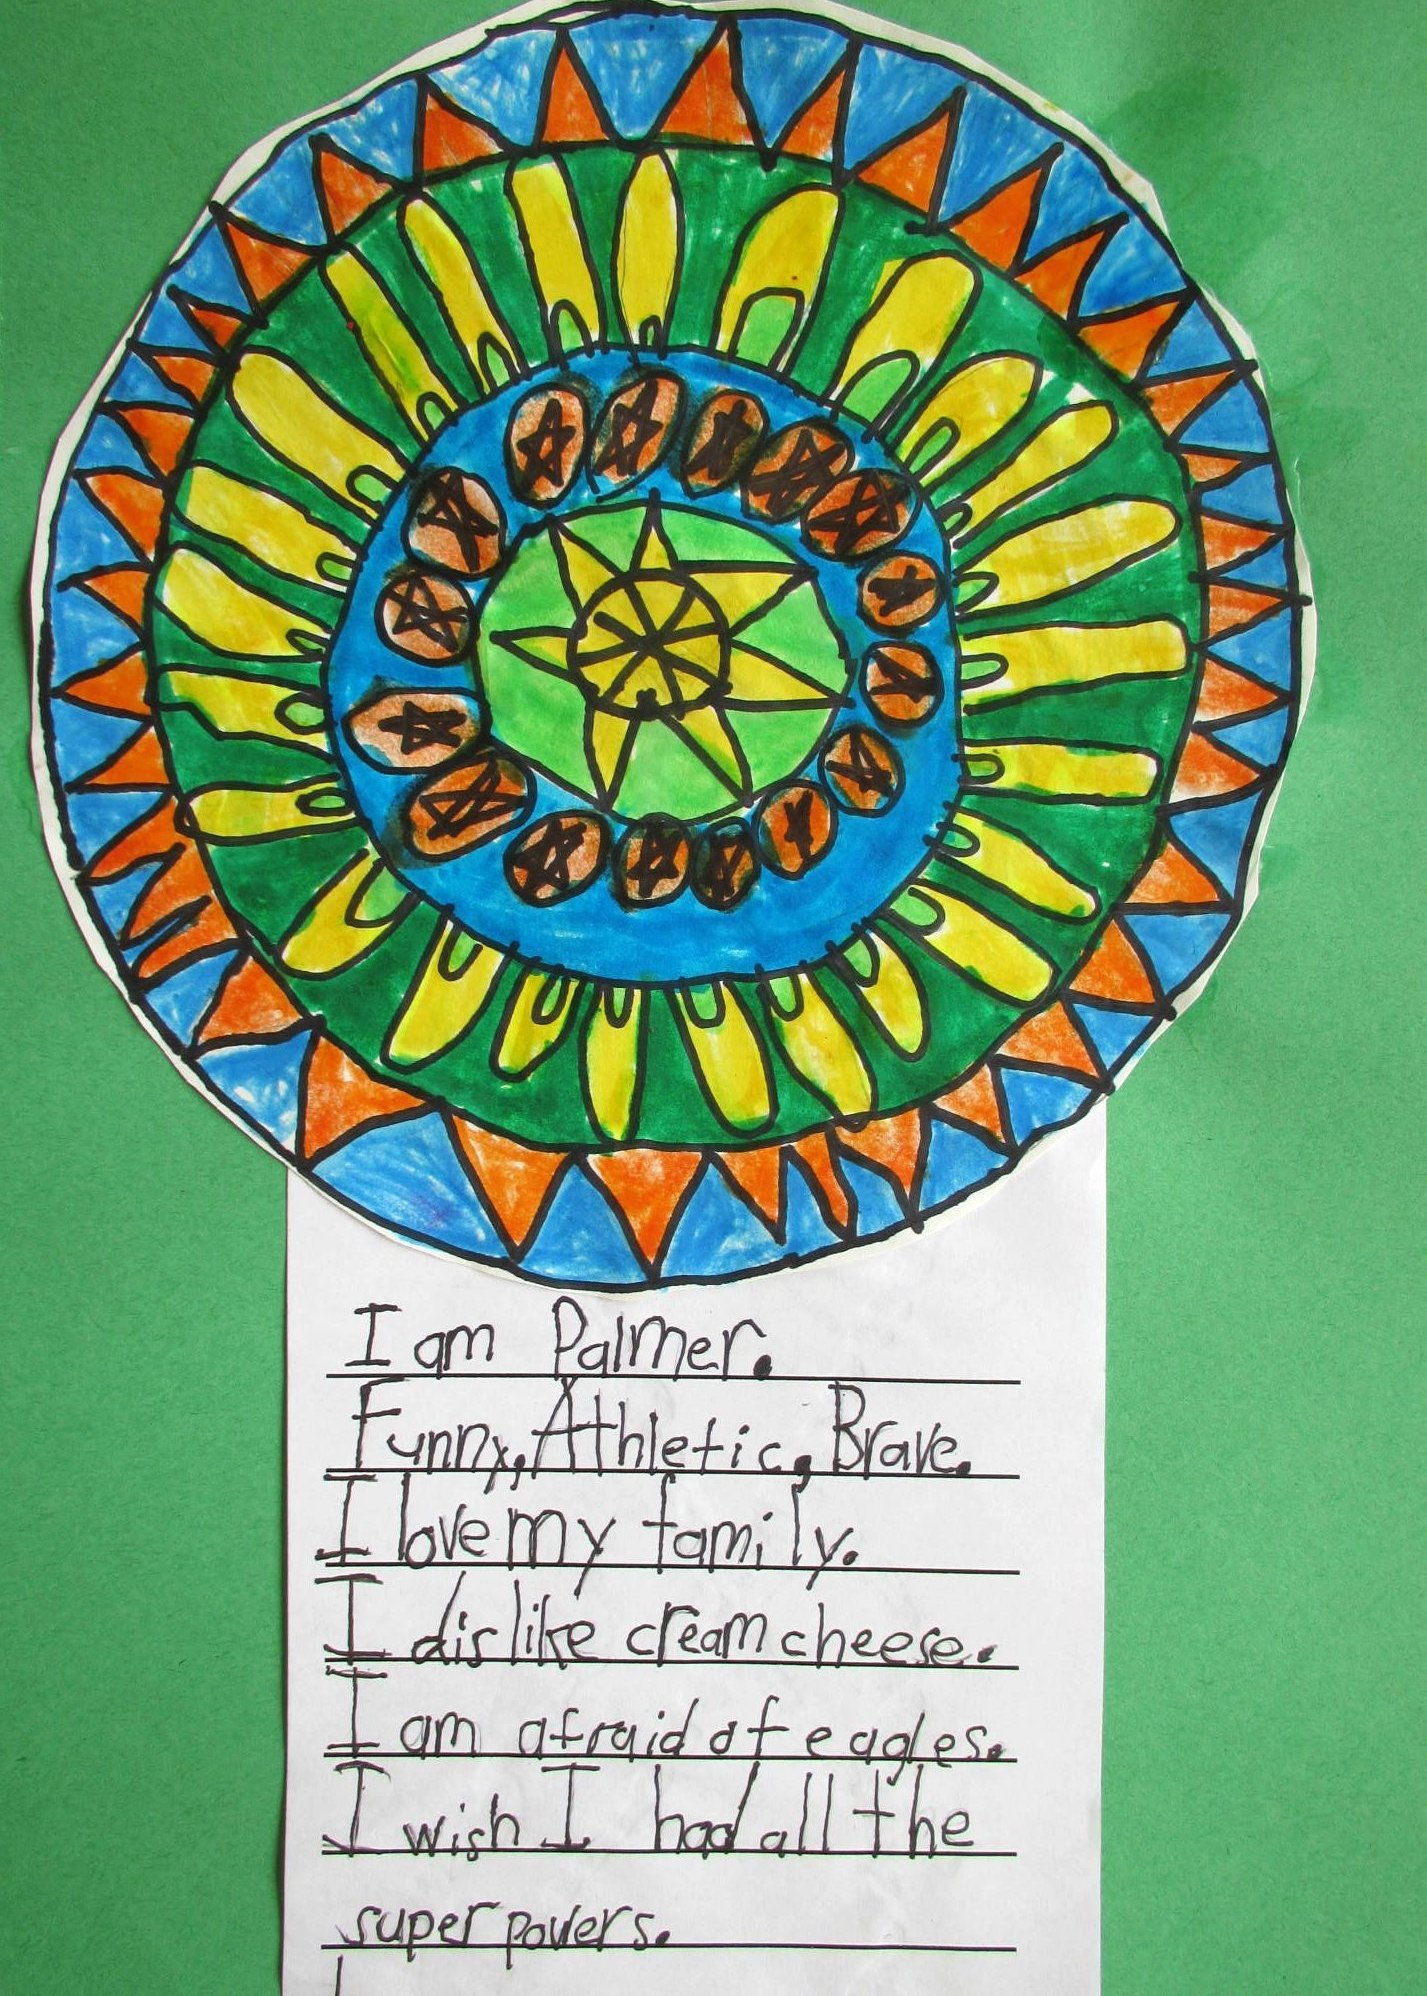 I am Palmer.
Funny, Athletic, Brave.
I love my family.
I dislike cream cheese.
I am afraid of eagles.
I wish I had all the
super powers.